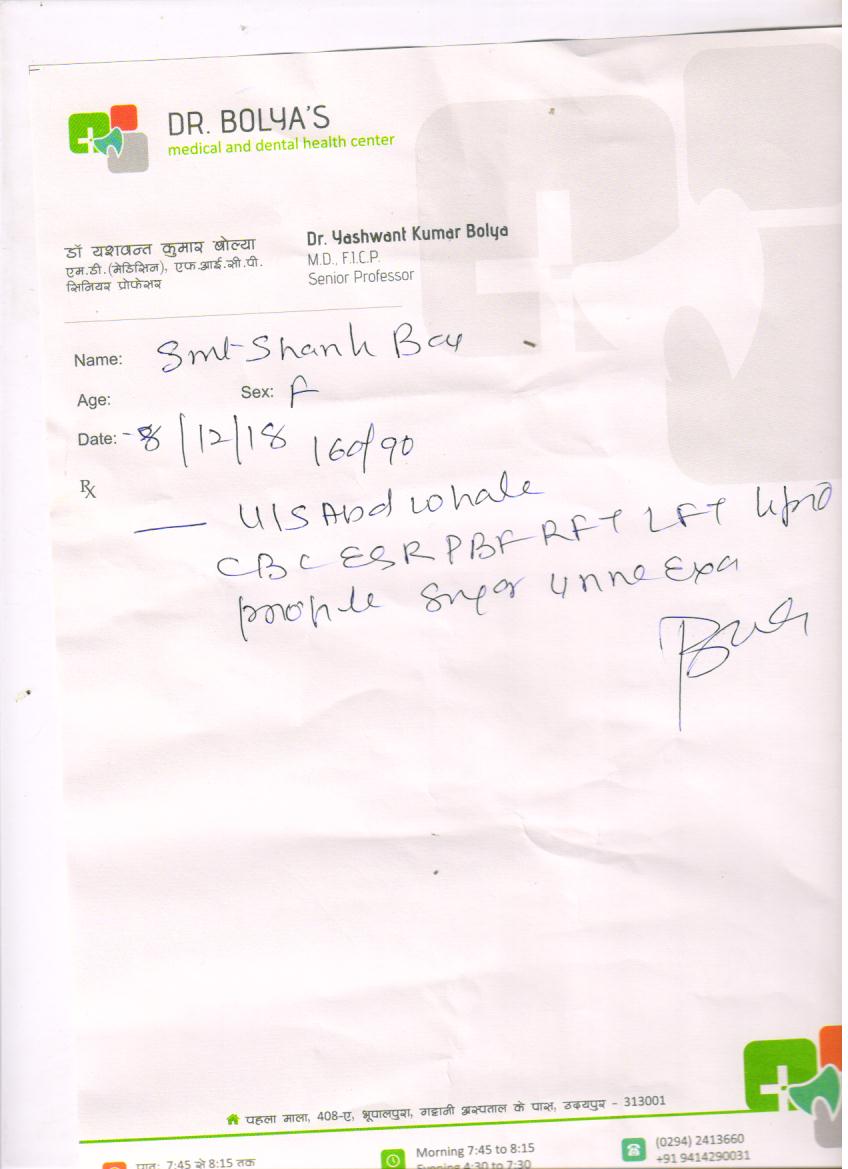 DR. BOLYA'S
medical and dental health center
डॉ यशवन्त कुमार बोल्या
एम.डी.(मेडिसिन), एफ.आई.सी.पी.
सिनियर प्रोफेसर
Dr. Yashwant Kumar Bolya
M.D., F.I.C.P.
Senior Professor
Name: Smt Shank
Age:
Sex: F
Date: 8/12/18 160/90
Rx
U/S Abd whole
CBC ESR PBF RFT LFT
urine Exa
पहला माला, 408-ए, भूपालपुरा, गट्टानी अस्पताल के पास, उदयपुर - 313001
प्रातः 7:45 से 8:15 तक
Morning 7:45 to 8:15
Evening 4:30 to 7:30
(0294) 2413660
+91 9414290031